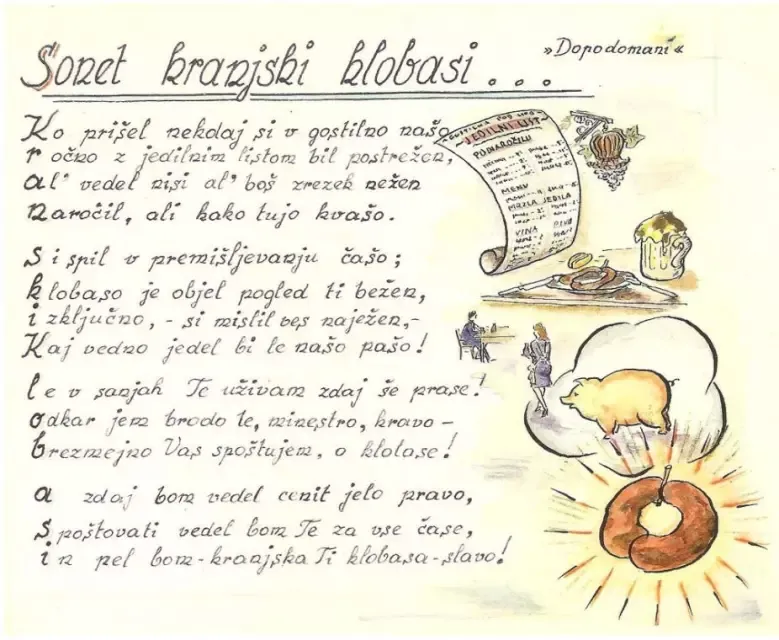 Sonet kranjski klobasi...
»Dopodomani«
Ko prišel nekdaj si v gostilno našo
ročno z jedilnim listom bil postrežen,
al' vedel nisi al' boš zrezek nežen
Naročil, ali kako tujo kvašo.
Si spil v premišljevanju čašo;
klobaso je objel pogled ti bežen,
izključno, - si mislil ves naježen,-
Kaj vedno jedel bi le našo pašo!
le v sanjah Te uživam zdaj še prase!
odkar jem brodo le, minestro, kravo -
brezmejno Vas spoštujem, o klobase!
a zdaj bom vedel cenit jelo pravo,
spoštovati vedel bom Te za vse čase,
in pel bom-kranjska Ti klobasa-slavo!
JEDILNI LIST
PO NAROČILU
MENU
MRZLA JEDILA
VINA